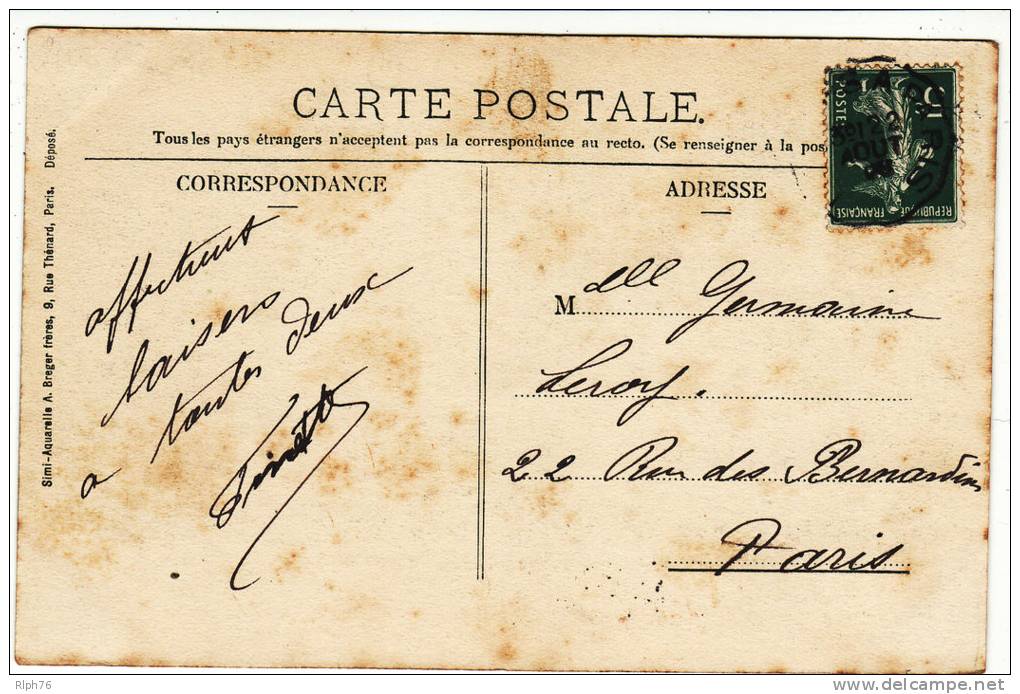 CARTE POSTALE.
Tous les pays étrangers n'acceptent pas la correspondance au recto. (Se renseigner à la pos
CORRESPONDANCE
affectueux
baisers
a toutes deux
ADRESSE
Mdlle Germaine
Leroy.
22 Rue des Bernardins
Paris
Simi-Aquarelle A. Breger frères, 9, Rue Thénard, Paris. Déposé.
5
POSTES
REPUBLIQUE FRANÇAISE
PARIS
AOUT
Rlph76
delcampe.net